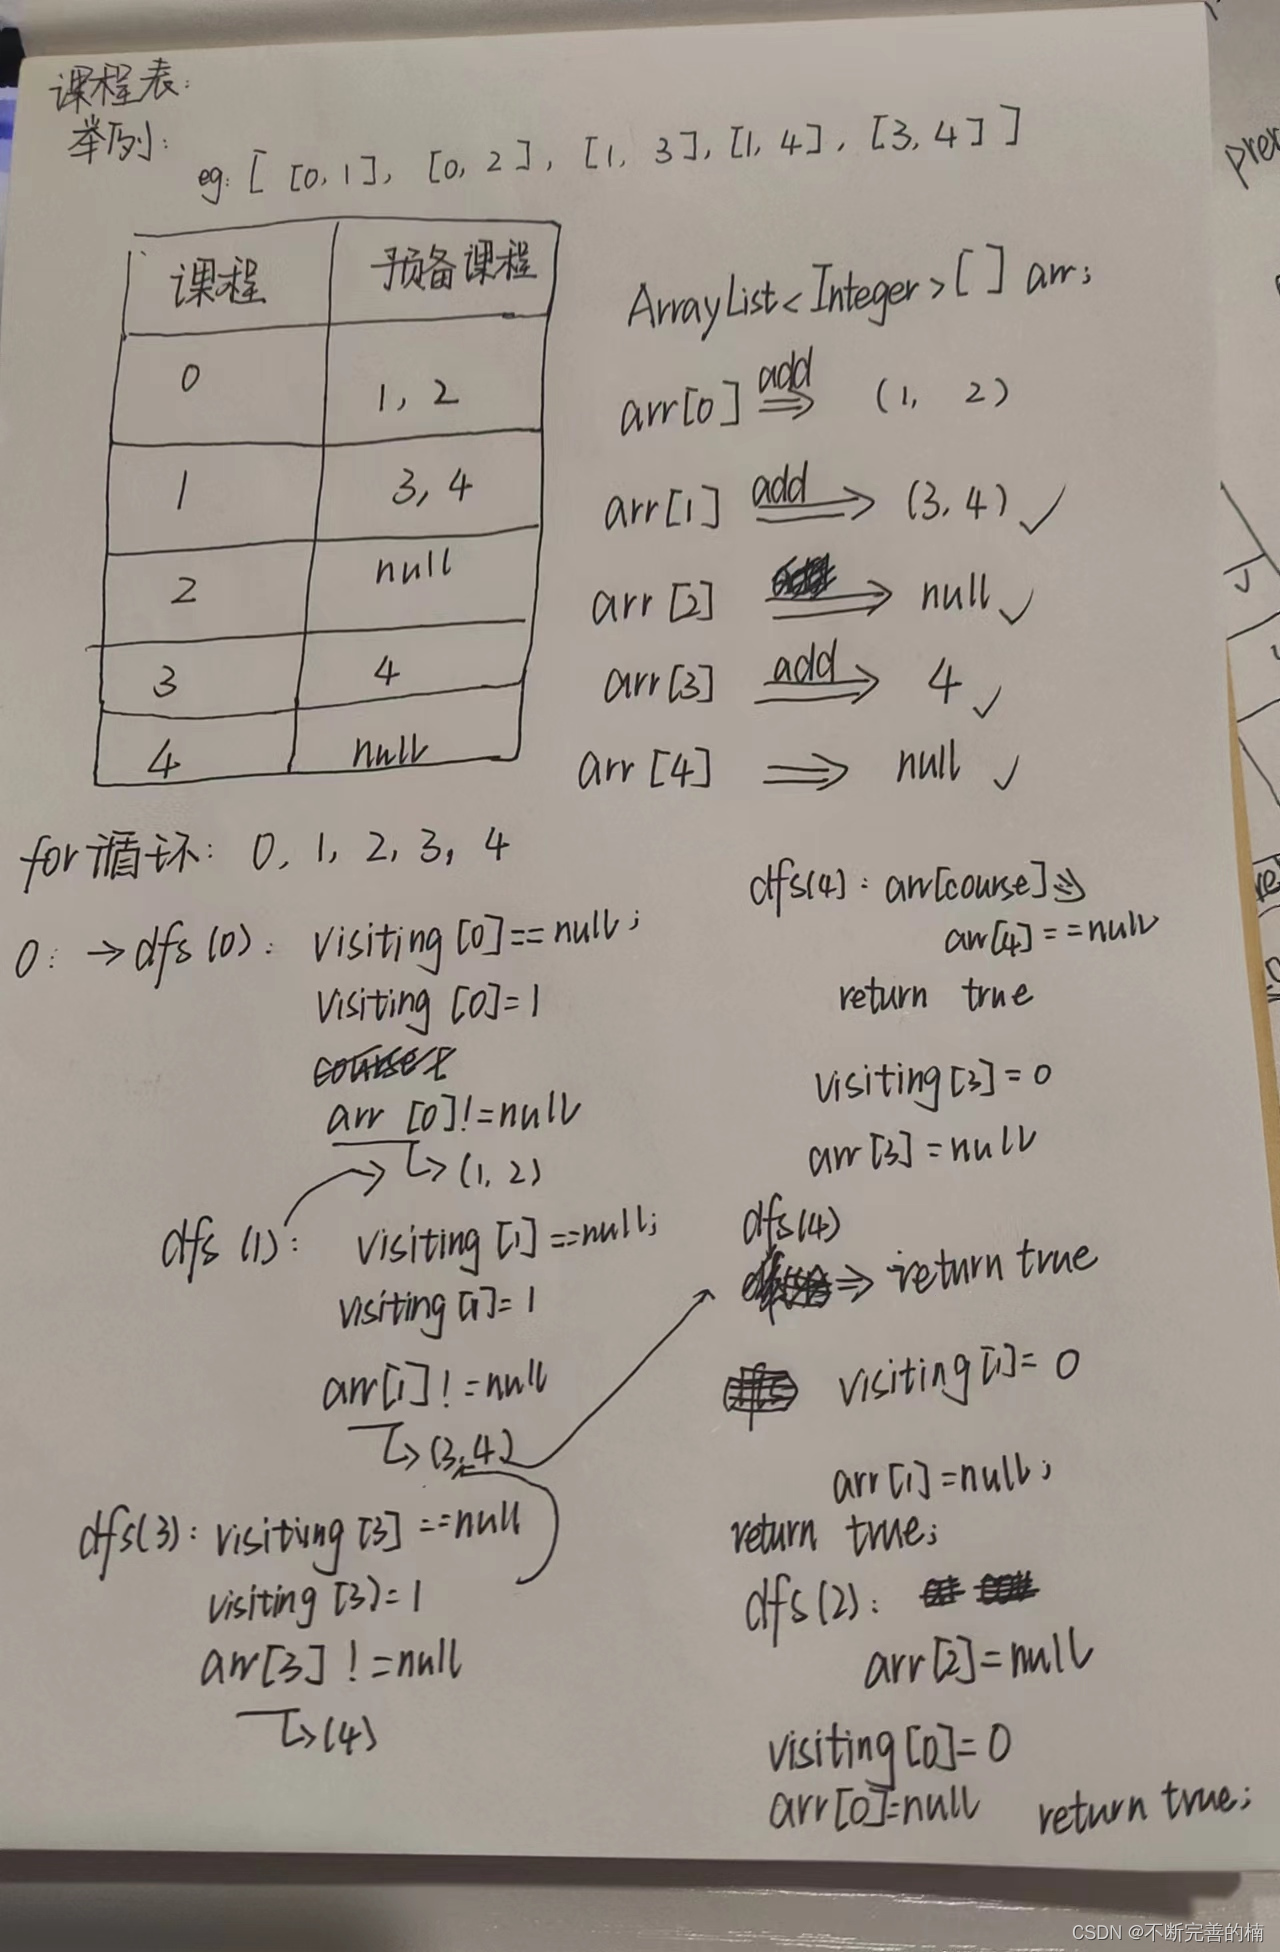 课程表:
举例:
eg: [ [0,1], [0,2], [1,3], [1,4], [3,4] ]
课程 预备课程
0 1, 2
1 3, 4
2 null
3 4
4 null
ArrayList<Integer>[] arr;
arr[0] add ⇒ (1, 2)
arr[1] add ⇒ (3,4) ✓
arr[2] ⇒ null ✓
arr[3] add ⇒ 4 ✓
arr[4] ⇒ null ✓
for循环: 0, 1, 2, 3, 4
0: → dfs(0): visiting[0]==null;
visiting[0]=1
arr[0]!=null
↳(1,2)
dfs(1): visiting[1]==null;
visiting[1]=1
arr[1]!=null
↳(3,4)
dfs(3): visiting[3]==null
visiting[3)=1
arr[3]!=null
↳(4)
dfs(4): arr[course]⇒
arr[4]==null
return true
visiting[3]=0
arr[3]=null
dfs(4)
⇒ return true
visiting[1]=0
arr[1]=null;
return true;
dfs(2):
arr[2]=null
visiting[0]=0
arr[0]=null return true;
CSDN @不断完善的楠